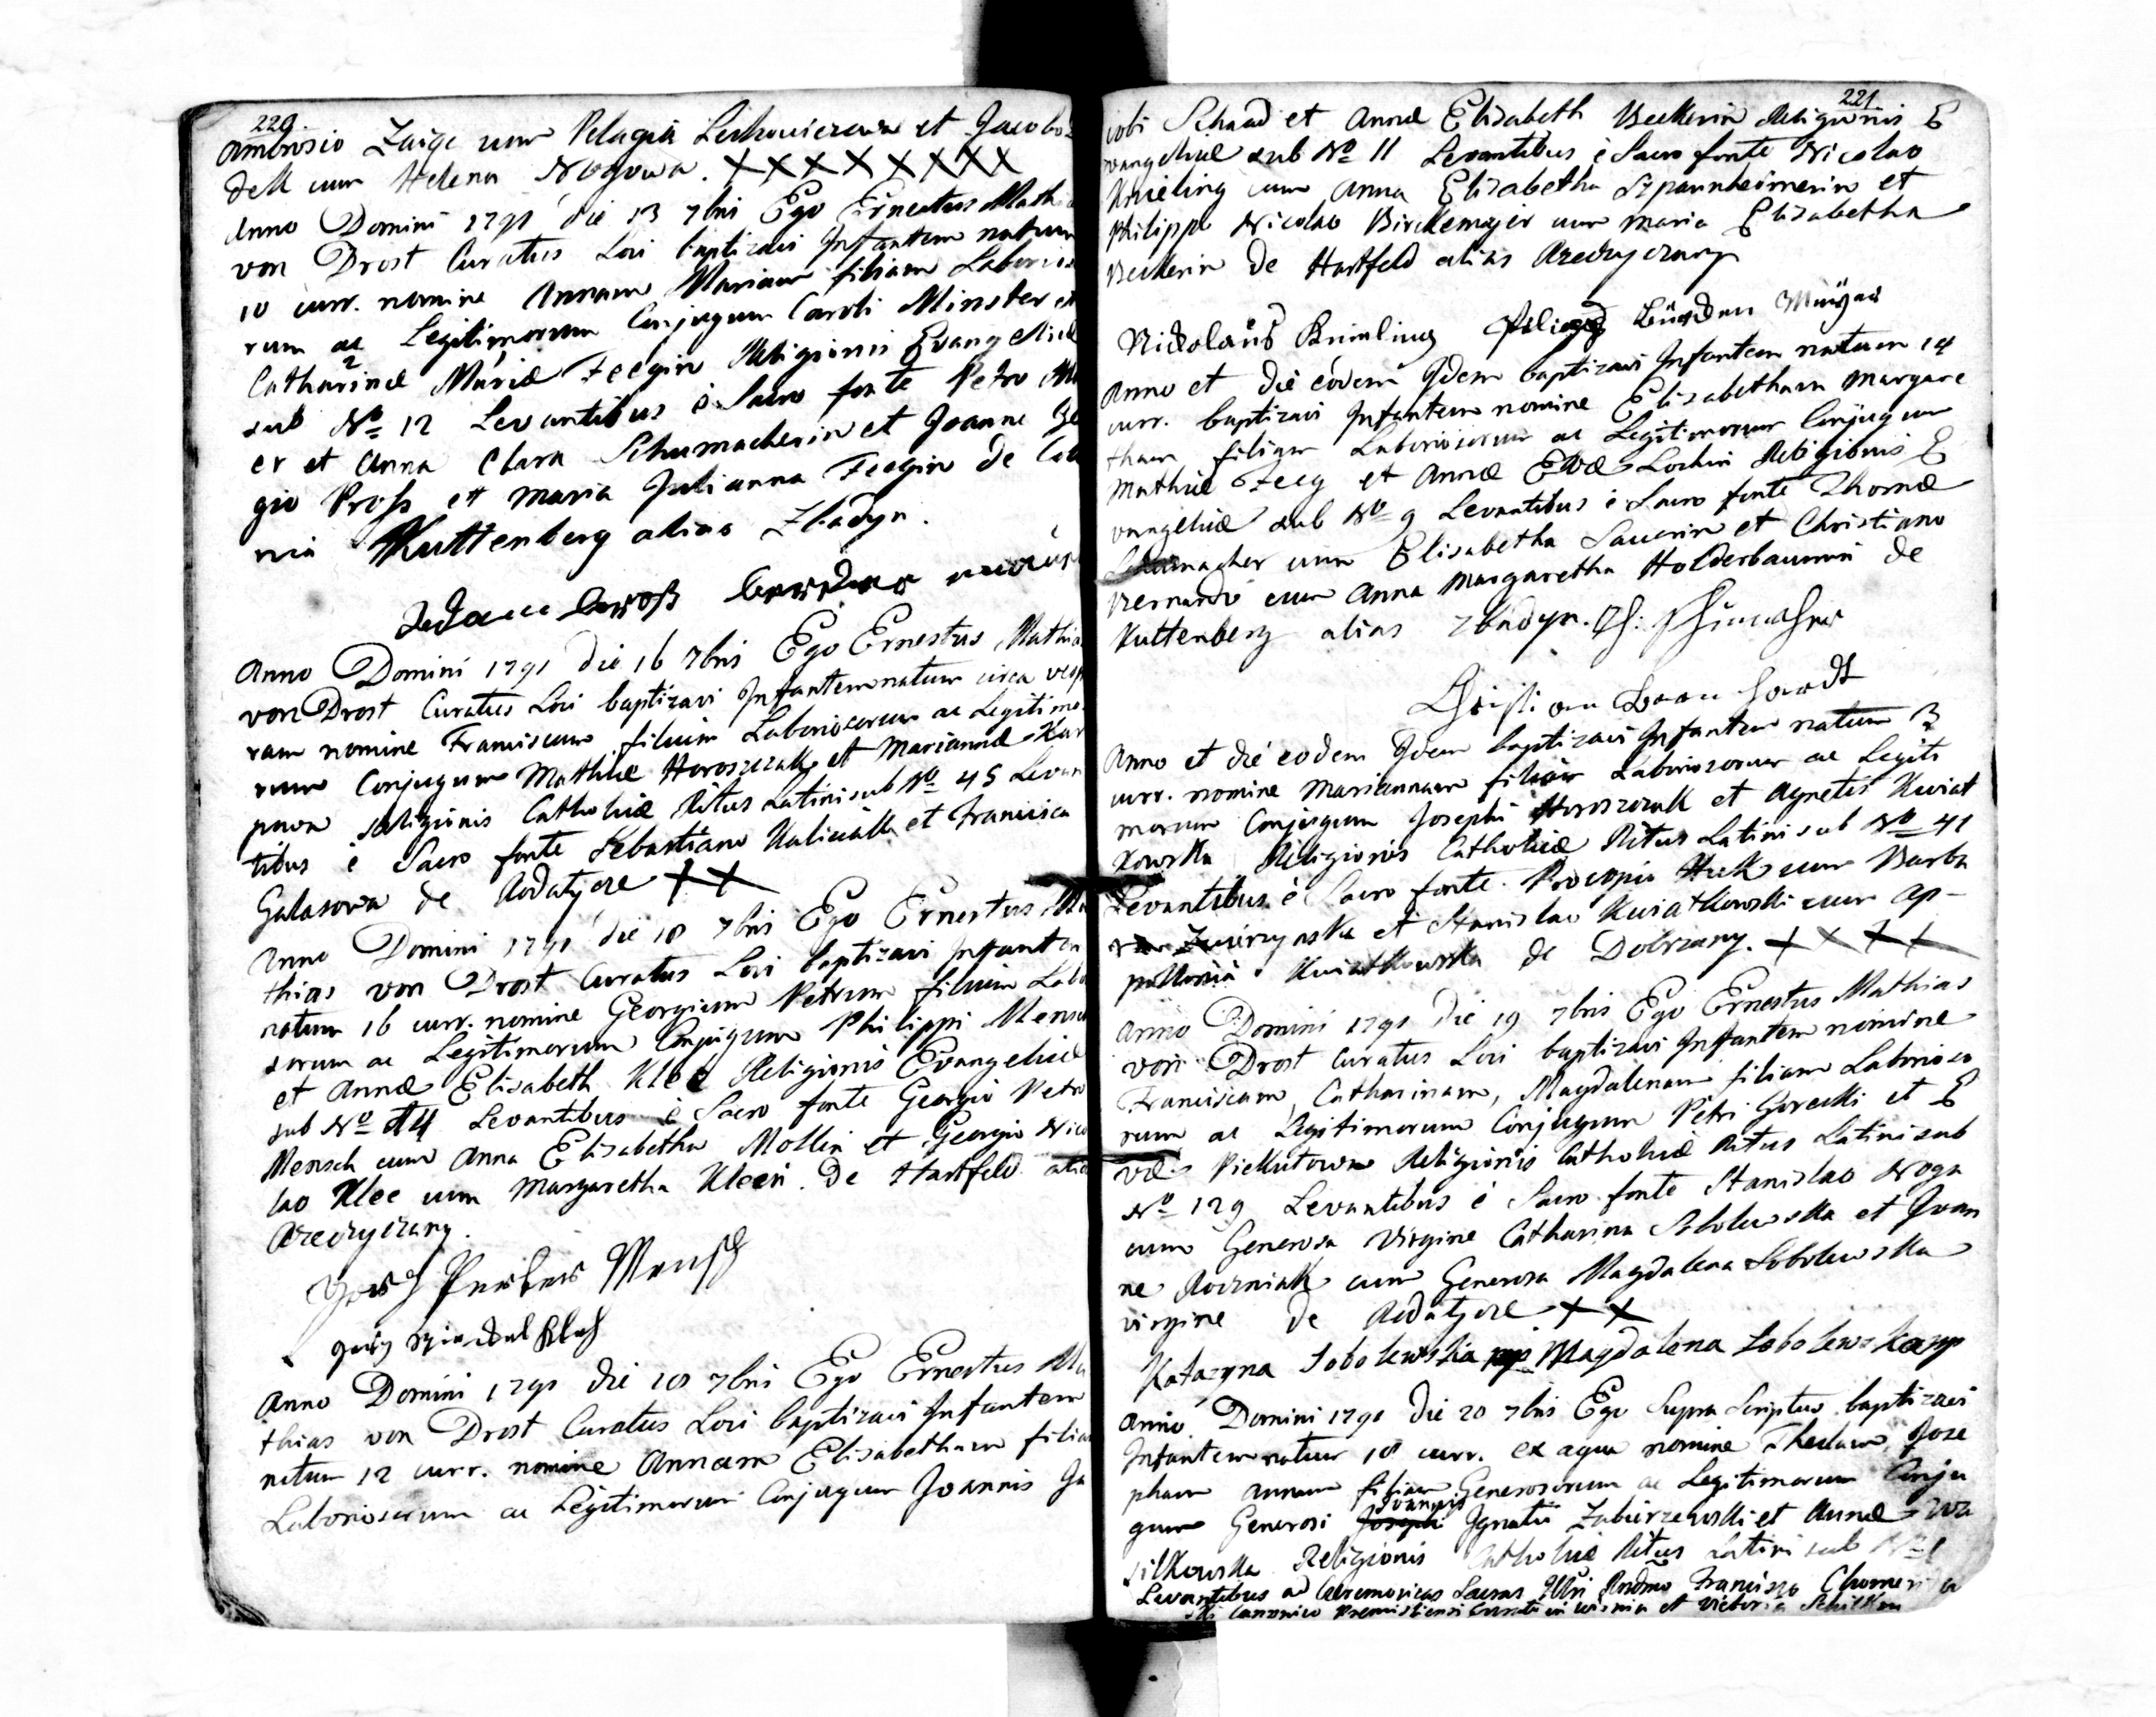 220.
Ambrosio Zaige cum Pelagia Leskowiczowa et Jacobo
dell cum Helena Nogowa. XXXXXXXX
Anno Domini 1791 die 13 7bris Ego Ernestus Mathia
von Drost Curatus Loci baptizavi Infantem natum
10 curr. nomine Annam Mariam filiam Laborioso
rum ac Legitimorum Conjugum Caroli Minster et
Catharinæ Mariæ Feegin Religionis Evangelicæ
sub No 12 Levantibus è Sacro fonte Petro
er et Anna Clara Schumacherin et Joanne
gio Pross et Maria Julianna Feegin de
nia Kuttenberg alias Zbadyn.
Anno Domini 1791 die 16 7bris Ego Ernestus Mathia
von Drost Curatus Loci baptizavi Infantem natum circa vesp
ram nomine Franciscum filium Laboriosorum ac Legitimo
rum Conjugum Mathiæ Horoszczak et Mariannæ Kar
powa Religionis Catholicæ Ritus Latini sub No 45 Levan
tibus è Sacro fonte Sebastiano Kaliciak et Francisca
Galasowa de Rodatycze ++
Anno Domini 1791 die 18 7bris Ego Ernestus Ma
thias von Drost Curatus Loci baptizavi Infantem
natum 16 curr. nomine Georgium Petrum filium Labo
sorum ac Legitimorum Conjugum Philippi Mensch
et Annæ Elisabeth Klee Religionis Evangelicæ
sub No 14 Levantibus è Sacro fonte Georgio Petro
Mensch cum Anna Elisabetha Mollin et Georgio Nico
lao Klee cum Margaretha Kleein de Hartfeld alia
Rzeczyczany.
Mensch
Anno Domini 1791 die 18 7bris Ego Ernestus Ma
thias von Drost Curatus Loci baptizavi Infantem
natum 12 curr. nomine Annam Elisabetham filiam
Laboriosorum ac Legitimorum Conjugum Joannis Ja
221.
cobi Schaad et Annæ Elisabeth Beckerin Religionis E
vangelicæ sub No 11 Levantibus è Sacro fonte Nicolao
Knieling cum Anna Elisabetha Szpannheimerin et
Philippo Nicolao Birckemajer cum Maria Elisabetha
Beckerin de Hartfeld alias Rzeczyczany
Nickolaus
Anno et die eodem Idem baptizavi Infantem natum 14
curr. baptizavi Infantem nomine Elisabetham Margare
tham filiam Laboriosorum ac Legitimorum Conjugum
Mathiæ Feeg et Annæ Evæ Lochin Religionis E
vangelicæ sub No 9 Levantibus è Sacro fonte Thomæ
Schumacher cum Elisabetha Sauerin et Christiano
Bernardi cum Anna Margaretha Holderbaumin de
Kuttenberg alias Zbadyn.
Anno et die eodem Idem baptizavi Infantem natum 3
curr. nomine Mariannam filiam Laboriosorum ac Legiti
morum Conjugum Josephi Horoszczak et Agnetis Kwiat
kowska Religionis Catholicæ Ritus Latini sub No 41
Levantibus è Sacro fonte Procopio Huk cum Barba
ra et Stanislao Kwiatkowski cum Ap-
pollonia Kwiatkowska de Dobrzany. ++++
Anno Domini 1791 die 19 7bris Ego Ernestus Mathias
von Drost Curatus Loci baptizavi Infantem nomine
Franciscam, Catharinam, Magdalenam filiam Laborioso
rum ac Legitimorum Conjugum Petri Gorecki et E
væ Piekutowa Religionis Catholicæ Ritus Latini sub
No 129 Levantibus è Sacro fonte Stanislao Noga
cum Generosa Virgine Catharina Sobolewska et Joan
ne Roczniak cum Generosa Magdalena Sobolewska
virgine de Rodatycze ++
Katazyna Sobolewska mp Magdalena Sobolewska mp
Anno Domini 1791 die 20 7bris Ego Supra Scriptus baptizavi
Infantem natum 18 curr. ex aqua nomine Theclam Jose
pham Annam filiam Generosorum ac Legitimorum Conju
gum Generosi Joannis Ignatii Zabierzewski et Annæ Wa
silkowska Religionis Catholicæ Ritus Latini sub No 1
Levantibus ad Ceremonias Sacras Francisco
ski Canonico Premisliensi Curato in Wisnia et Victoria